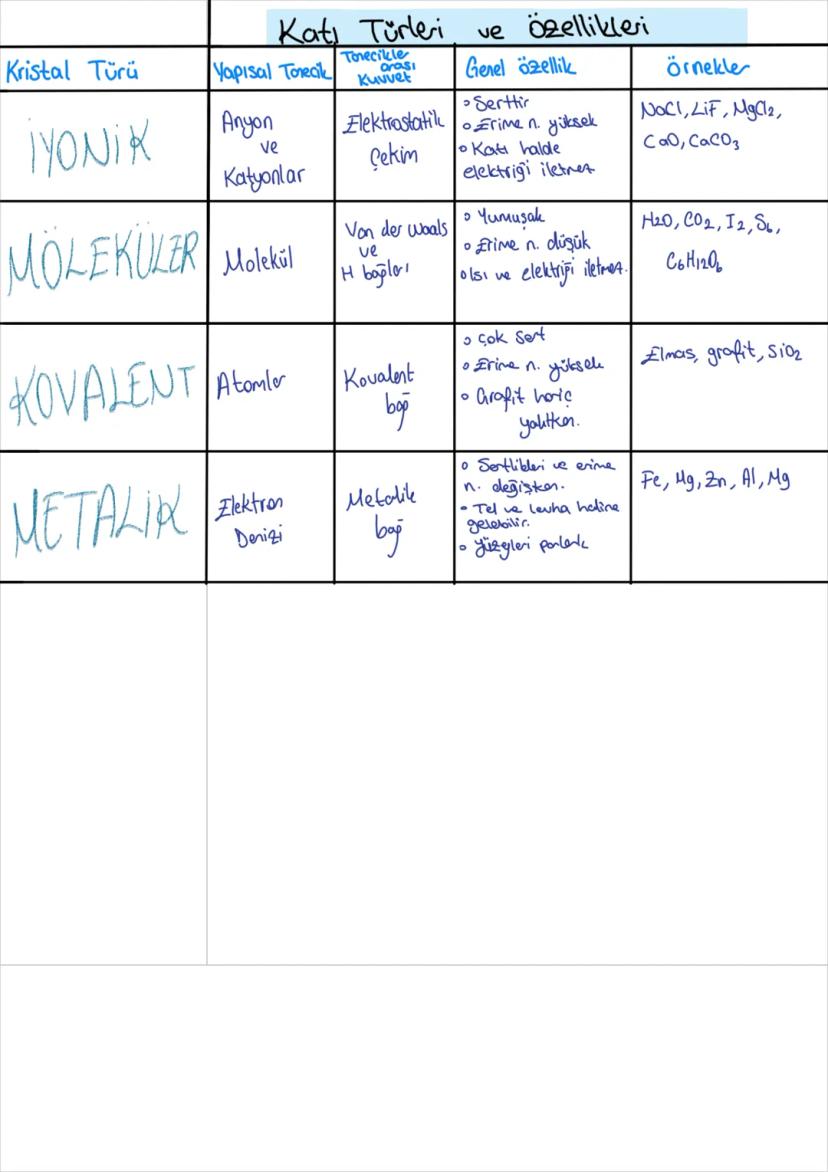 Katı Türleri ve özellikleri
Kristal Türü
Yapısal Tanecik
Tanecikler
arası
Kuvvet
Genel özellik
Örnekler
İYONİK
Anyon
ve
Katyonlar
Elektrostatik
Çekim
• Serttir
• Erime n. yüksek
• Katı halde
elektriği iletmez
NaCl, LiF, MgCl2,
CaO, CaCO3
MÖLEKÜLER
Molekül
Van der Waals
ve
H bağları
• Yumuşak
• Erime n. düşük
• Isı ve elektriği iletmez.
H2O, CO2, I2, S6,
C6H12O6
KOVALENT
Atomlar
Kovalent
bağ
• Çok sert
• Erime n. yüksek
• Grafit hariç
yalıtkan.
Elmas, grafit, SiO2
METALİK
Elektron
Denizi
Metalik
bağ
• Sertlikleri ve erime
n. değişken.
• Tel ve levha haline
gelebilir.
• Yüzeyleri parlak
Fe, Mg, Zn, Al, Mg